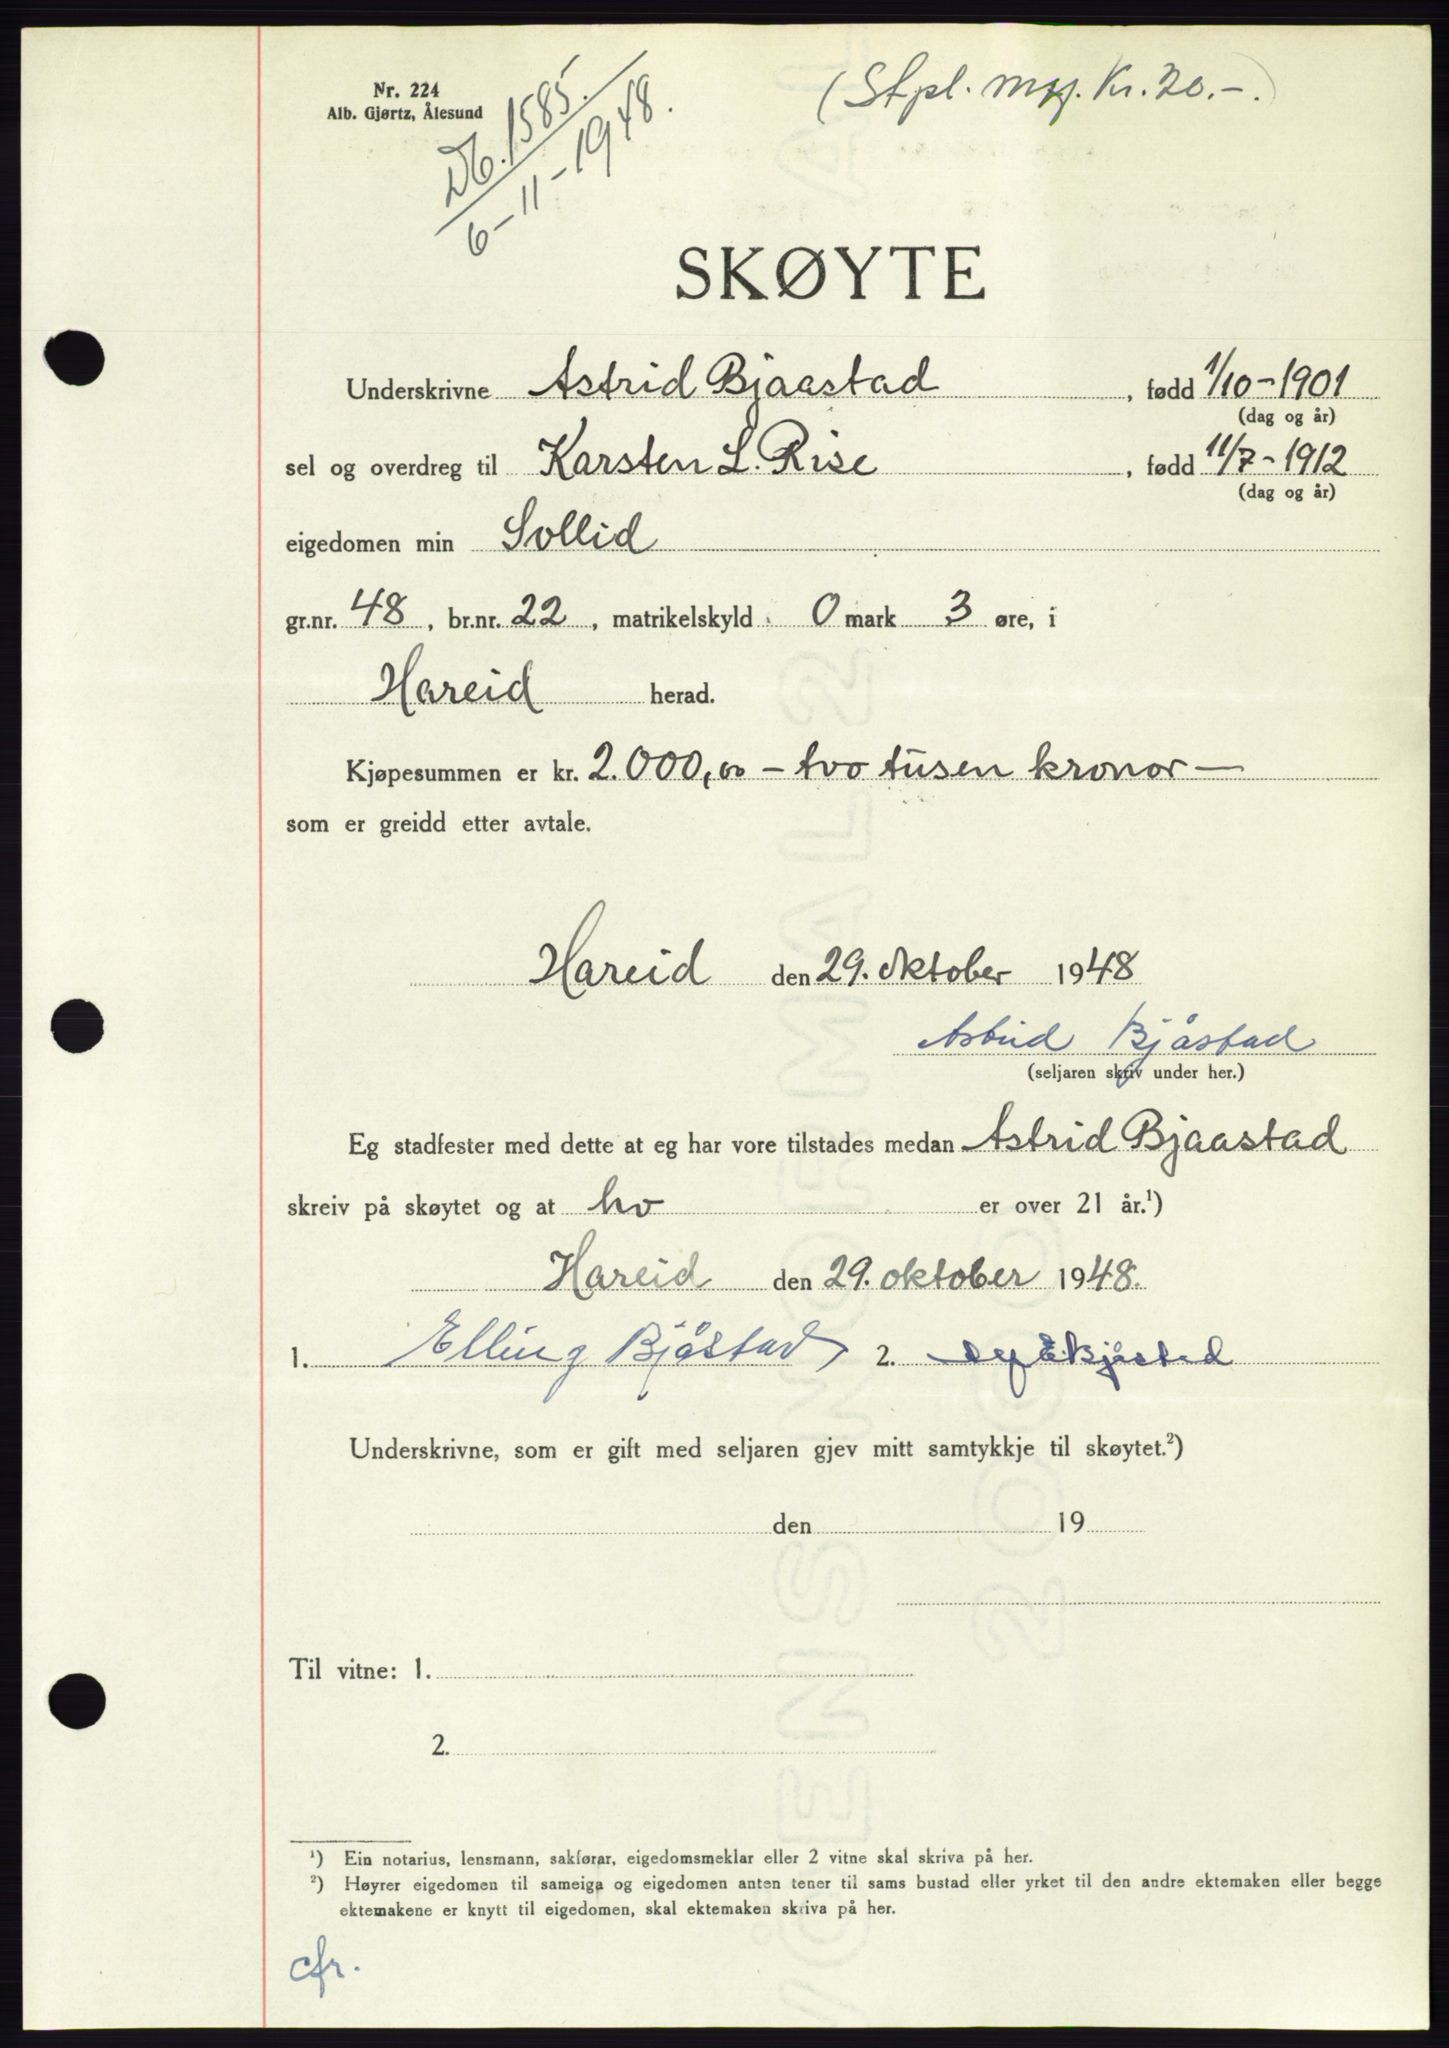 Nr. 224
Alb. Gjørtz, Ålesund
Db. 1585.
6-11-1948.
(Stpl. m Kr. 20.-.)
SKØYTE
Underskrivne Astrid Bjaastad, fødd 1/10-1901
(dag og år)
sel og overdreg til Karsten L. Rise, fødd 11/7-1912
(dag og år)
eigedomen min Sollid
gr.nr. 48, br.nr. 22, matrikelskyld 0 mark 3 øre, i
Hareid herad.
Kjøpesummen er kr. 2.000,00 - tvo tusen kronor -
som er greidd etter avtale.
Hareid den 29. oktober 1948
Astrid Bjåstad
(seljaren skriv under her.)
Eg stadfester med dette at eg har vore tilstades medan Astrid Bjaastad
skreiv på skøytet og at ho er over 21 år.¹)
Hareid den 29. oktober 1948.
1. Elling Bjåstad 2. Bjåstad
Underskrivne, som er gift med seljaren gjev mitt samtykkje til skøytet.²)
den 19
Til vitne: 1.
2.
¹) Ein notarius, lensmann, sakførar, eigedomsmeklar eller 2 vitne skal skriva på her.
²) Høyrer eigedomen til sameiga og eigedomen anten tener til sams bustad eller yrket til den andre ektemaken eller begge
ektemakene er knytt til eigedomen, skal ektemaken skriva på her.
cfr.